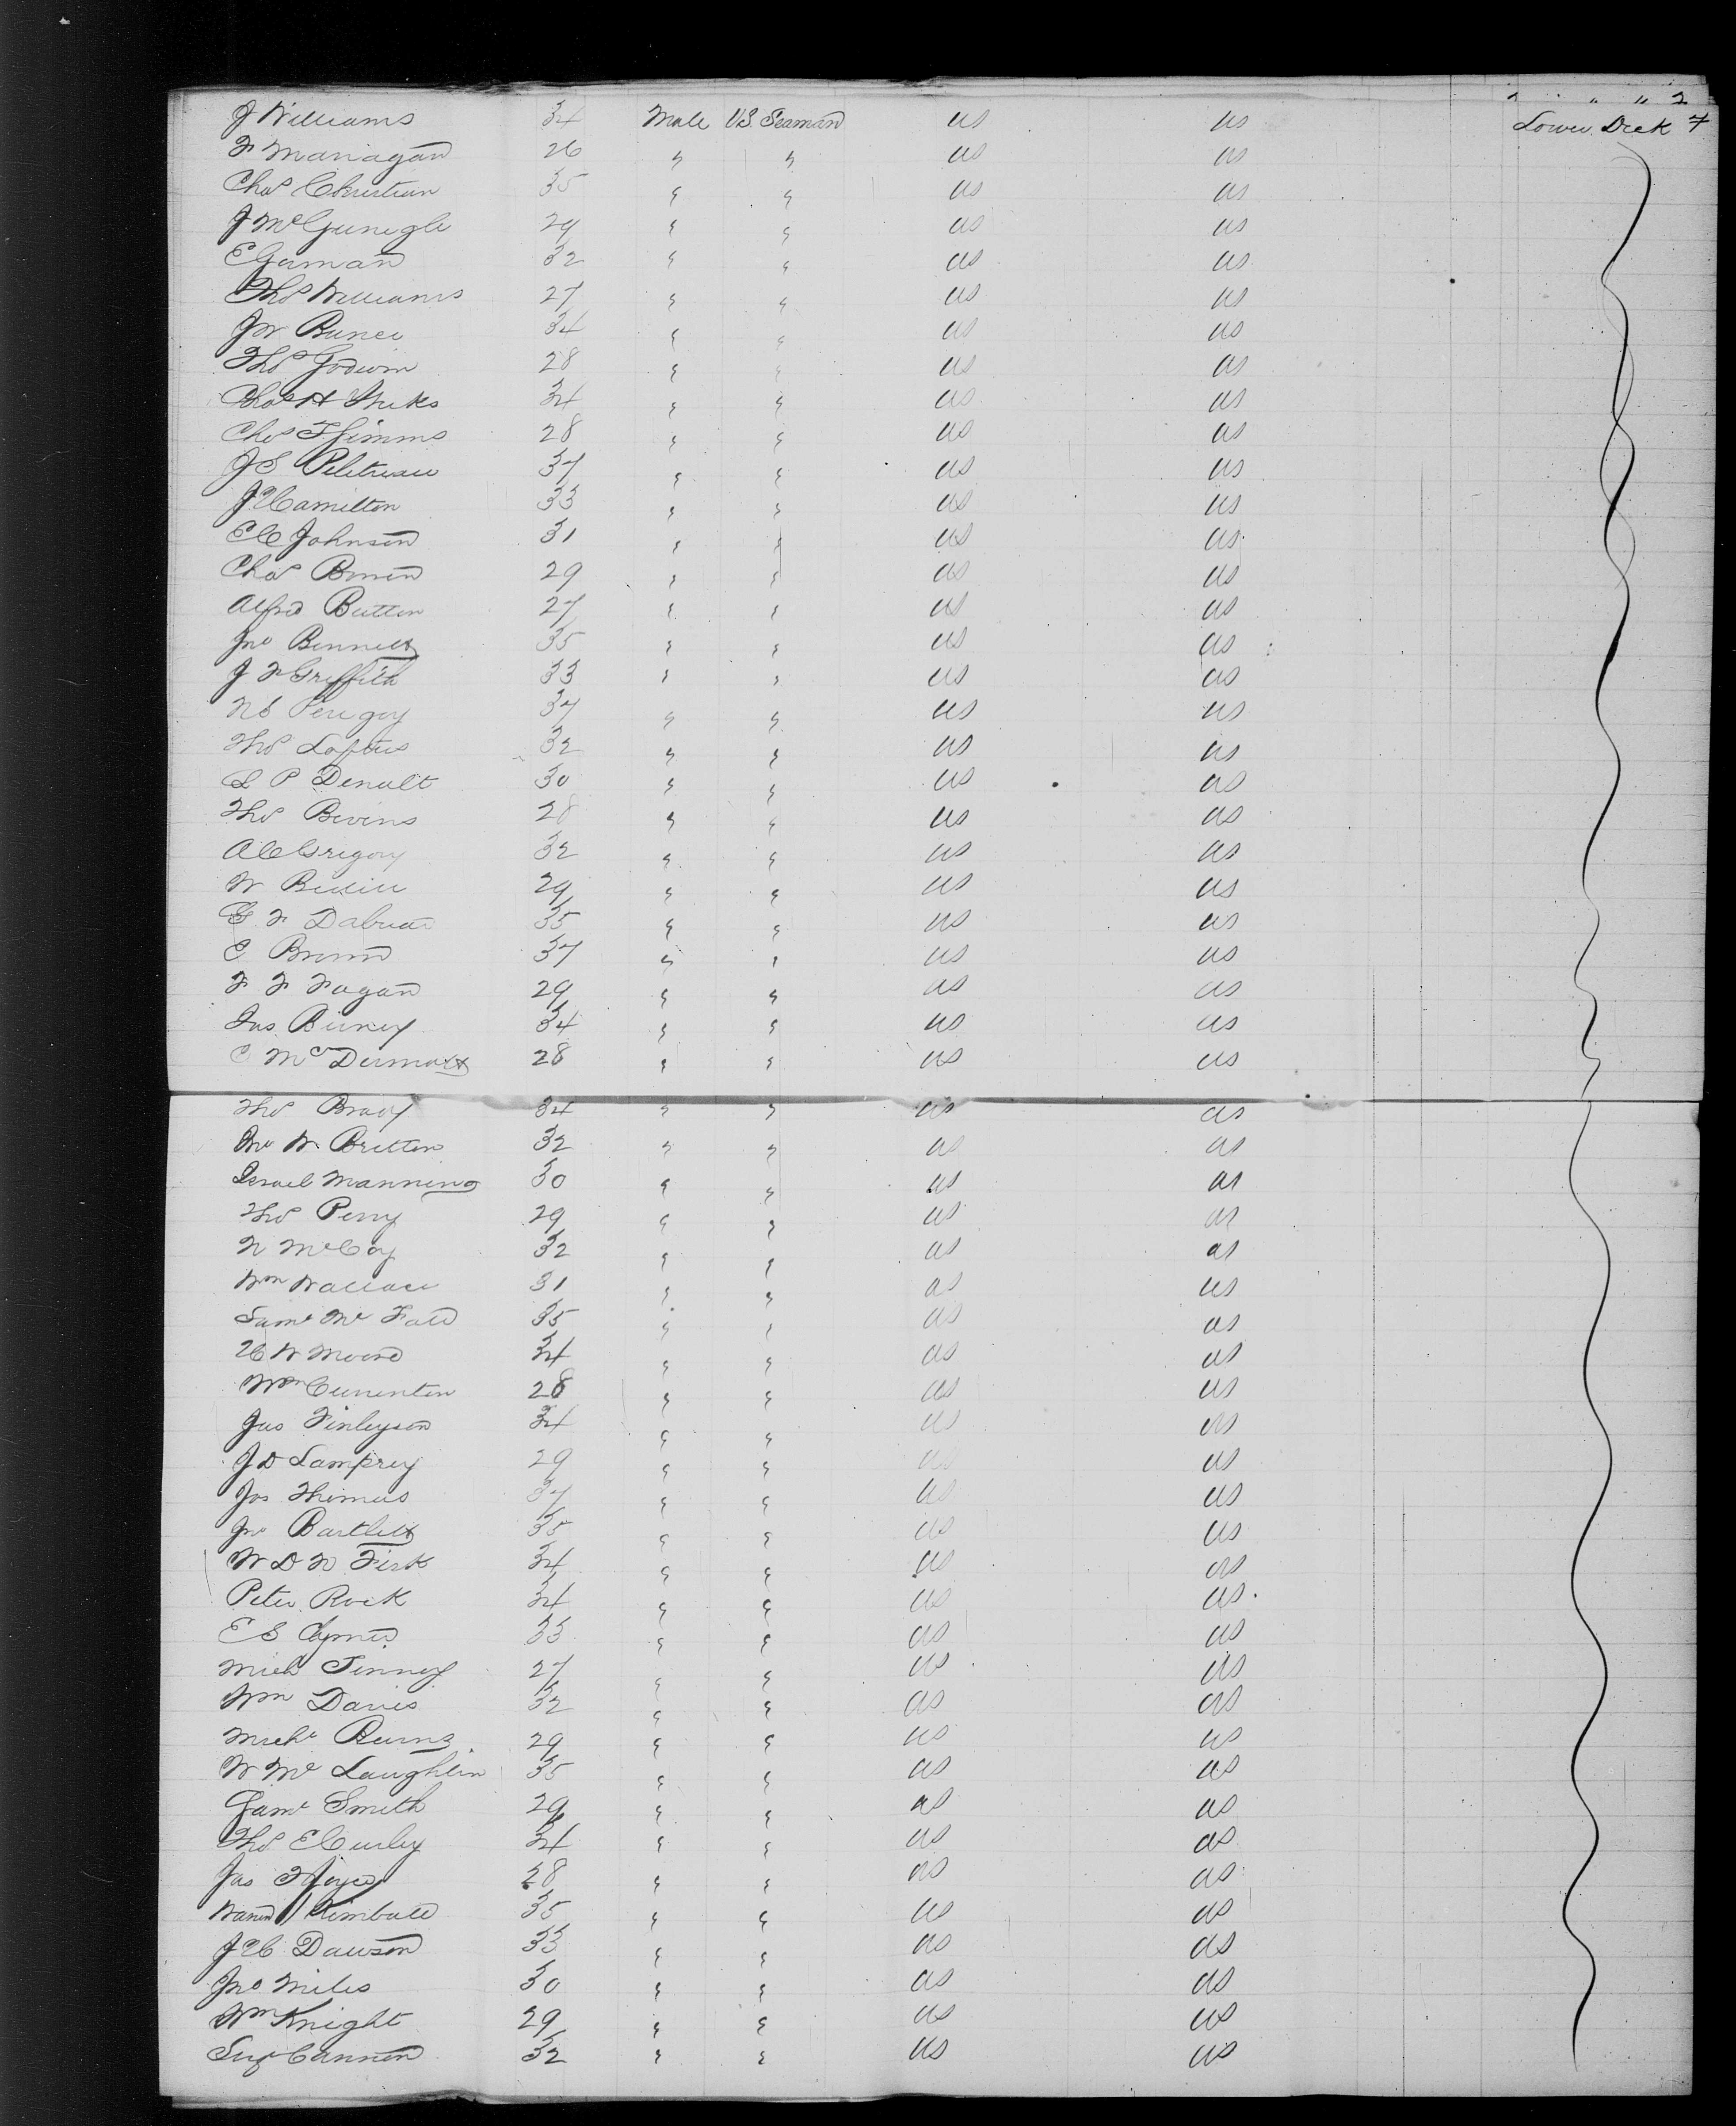 " " 2
J Williams 34 Male U.S. Seaman US US Lower Deck 7
F Managan 26 " " US US
Chas Christian 35 " " US US
J McGunegle 29 " " US US
E German 32 " " US US
Thos Williams 27 " " US US
JW Bunce 34 " " US US
Thos Godwin 28 " " US US
Chas H 34 " " US US
Chas T Simms 28 " " US US
J S 37 " " US US
J Hamilton 33 " " US US
E C Johnson 31 " " US US
Chas Brown 29 " " US US
Alfred Button 27 " " US US
Jno Bennett 35 " " US US
J F Griffith 33 " " US US
N S Peregoy 37 " " US US
Thos Loftus 32 " " US US
L P Denult 30 " " US US
Thos Bivins 28 " " US US
A C Gregory 32 " " US US
W 29 " " US US
G F 35 " " US US
C Brown 37 " " US US
F F Fagan 29 " " US US
Jas Birney 34 " " US US
C McDermott 28 " " US US
Thos Brady 34 " " US US
Jno W Britton 32 " " US US
Israel Manning 30 " " US US
Thos Perry 29 " " US US
N McCoy 32 " " US US
Wm Wallace 31 " " US US
Saml Mc Fall 35 " " US US
H W Moore 34 " " US US
Wm 28 " " US US
Jas Finlayson 34 " " US US
J D Lamprey 29 " " US US
Jos Thomas 37 " " US US
Jno Bartlett 35 " " US US
W D N Fisk 34 " " US US
Peter Rock 34 " " US US
E S Clymer 33 " " US US
Mich Finney 27 " " US US
Wm Davis 32 " " US US
Michl Burns 29 " " US US
W Mc Laughlin 35 " " US US
Saml Smith 29 " " US US
Thos E Curley 34 " " US US
Jas F Joyce 28 " " US US
Warren Kimball 35 " " US US
J H Dawson 33 " " US US
Jno Miles 30 " " US US
Wm Knight 29 " " US US
Cannon 32 " " US US